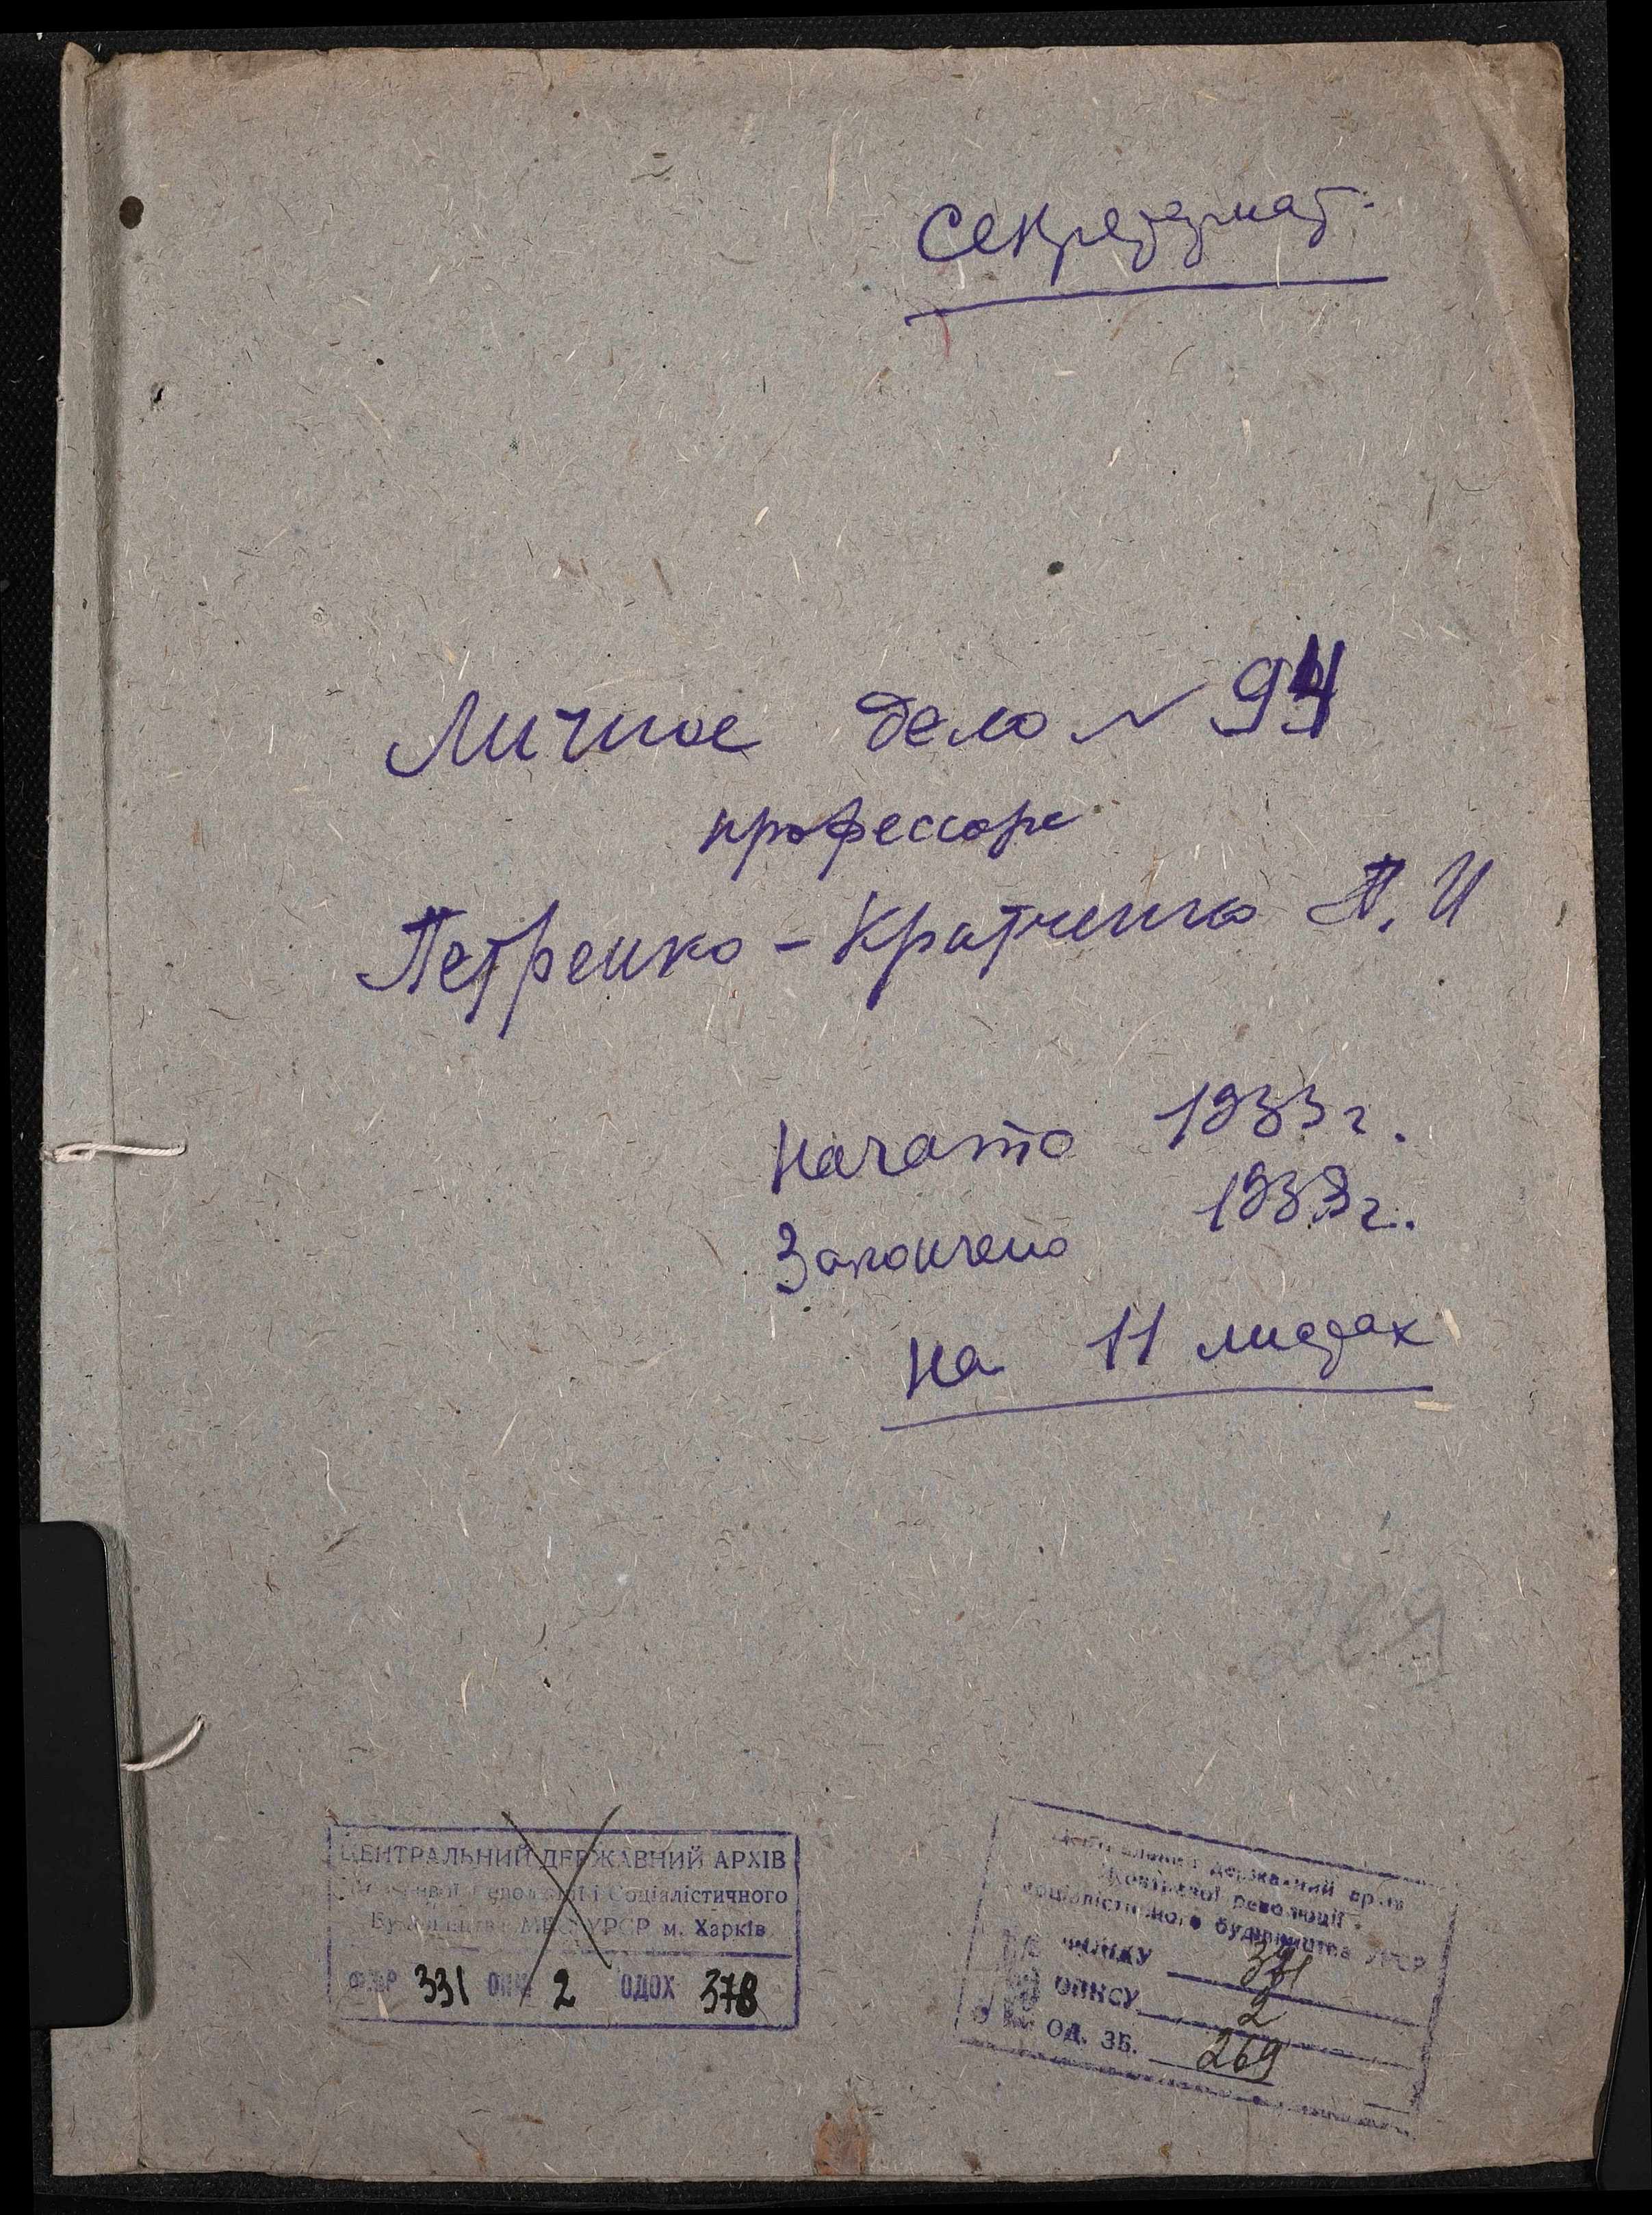 Секретариат.
Личное дело № 94
профессора
Петренко-Критченко П. И
Начато 1933 г.
Закончено 1933 г.
на 11 листах
269
ЦЕНТРАЛЬНИЙ ДЕРЖАВНИЙ АРХІВ
Жовтневої Революції і Соціалістичного
Будівництва МВС УРСР м. Харків
Ф.ЗР 331 ОПИС 2 ОДОХ 378
Центральний державний архів
Жовтневої революції і
соціалістичного будівництва УРСР
ФОНДУ 331
ОПИСУ 2
ОД. ЗБ. 269